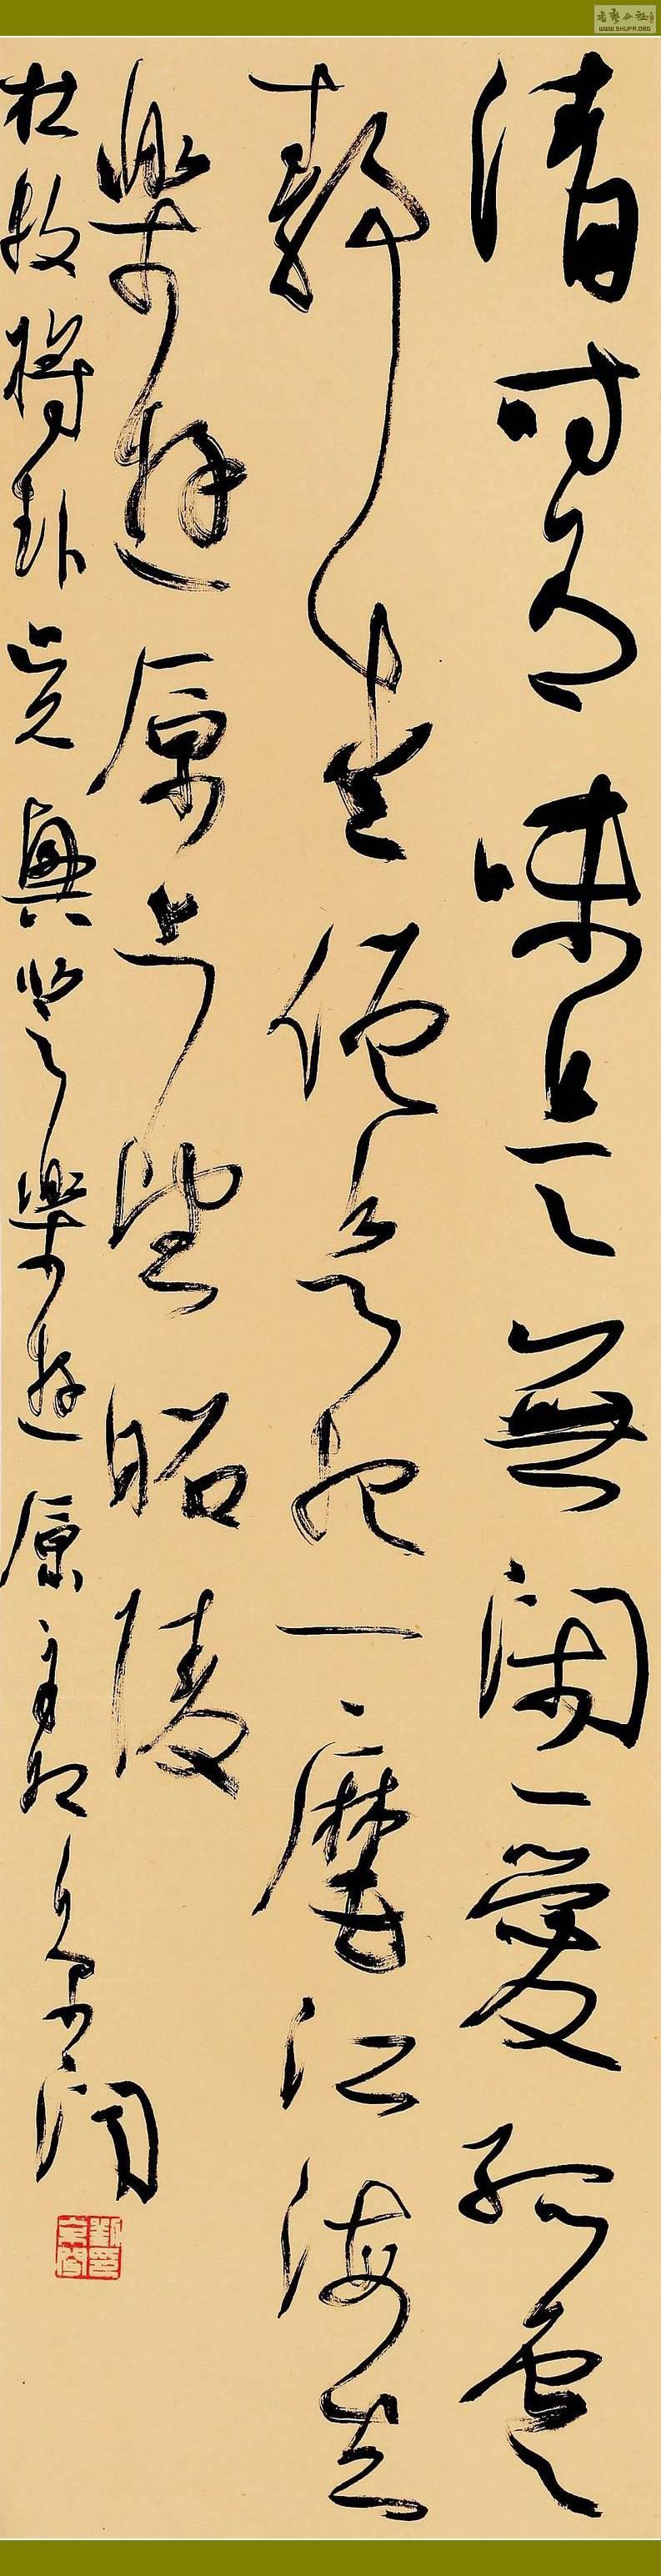 書藝公社
WWW.SHUFA.ORG
清時有味是無閑愛孤雲
靜愛僧欲把一麾江海去
樂遊原上望昭陵
杜牧將赴吳興登樂遊原 辛卯 京聞